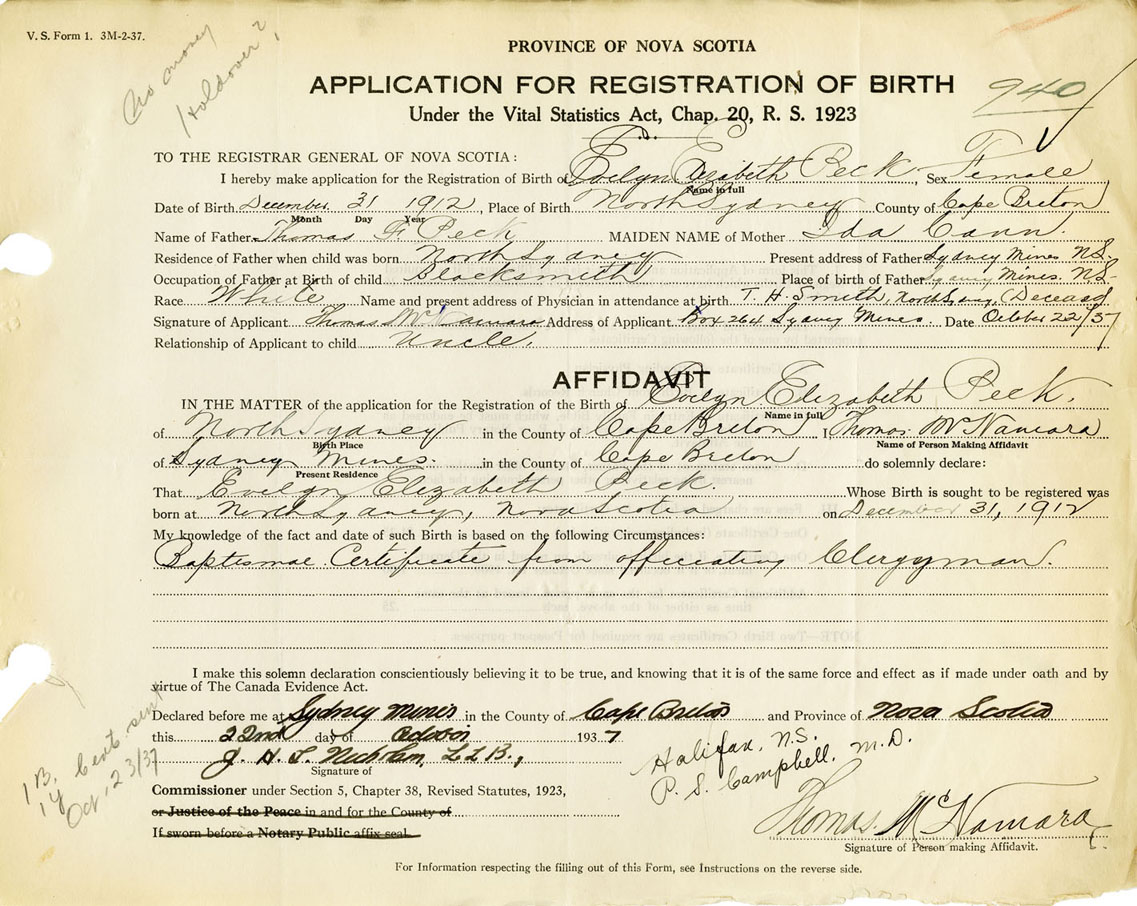 V. S. Form 1. 3M-2-37.
No money
Holdover?
PROVINCE OF NOVA SCOTIA
APPLICATION FOR REGISTRATION OF BIRTH
940
Under the Vital Statistics Act, Chap. 20, R. S. 1923
TO THE REGISTRAR GENERAL OF NOVA SCOTIA:
I hereby make application for the Registration of Birth of Evelyn Elizabeth Peck, Sex Female
Name in full
Date of Birth December 31 1912, Place of Birth North Sydney County of Cape Breton
Month Day Year
Name of Father Thomas F Peck MAIDEN NAME of Mother Ida Cann.
Residence of Father when child was born North Sydney Present address of Father Sydney Mines N.S.
Occupation of Father at Birth of child Blacksmith Place of birth of Father Sydney Mines. N.S.
Race White Name and present address of Physician in attendance at birth T. H. Smith, North Sydney, (Deceased
Signature of Applicant Thomas McNamara Address of Applicant Box 264 Sydney Mines. Date October 22/37
Relationship of Applicant to child Uncle.
AFFIDAVIT
IN THE MATTER of the application for the Registration of the Birth of Evelyn Elizabeth Peck.
Name in full
of North Sydney in the County of Cape Breton I Thomas McNamara
Birth Place Name of Person Making Affidavit
of Sydney Mines. in the County of Cape Breton do solemnly declare:
Present Residence
That Evelyn Elizabeth Peck. Whose Birth is sought to be registered was
born at North Sydney, Nova Scotia on December 31, 1912
My knowledge of the fact and date of such Birth is based on the following Circumstances:
Baptismal Certificate from officiating Clergyman.
I make this solemn declaration conscientiously believing it to be true, and knowing that it is of the same force and effect as if made under oath and by
virtue of The Canada Evidence Act.
Declared before me at Sydney Mines in the County of Cape Breton and Province of Nova Scotia
this 22nd day of October 1937
Halifax, N.S.
P. S. Campbell, M.D.
Signature of
1 B. Cert. sent
Oct. 23/37
Commissioner under Section 5, Chapter 38, Revised Statutes, 1923,
or Justice of the Peace in and for the County of
If sworn before a Notary Public affix seal.
Thomas McNamara
Signature of Person making Affidavit.
For Information respecting the filling out of this Form, see Instructions on the reverse side.